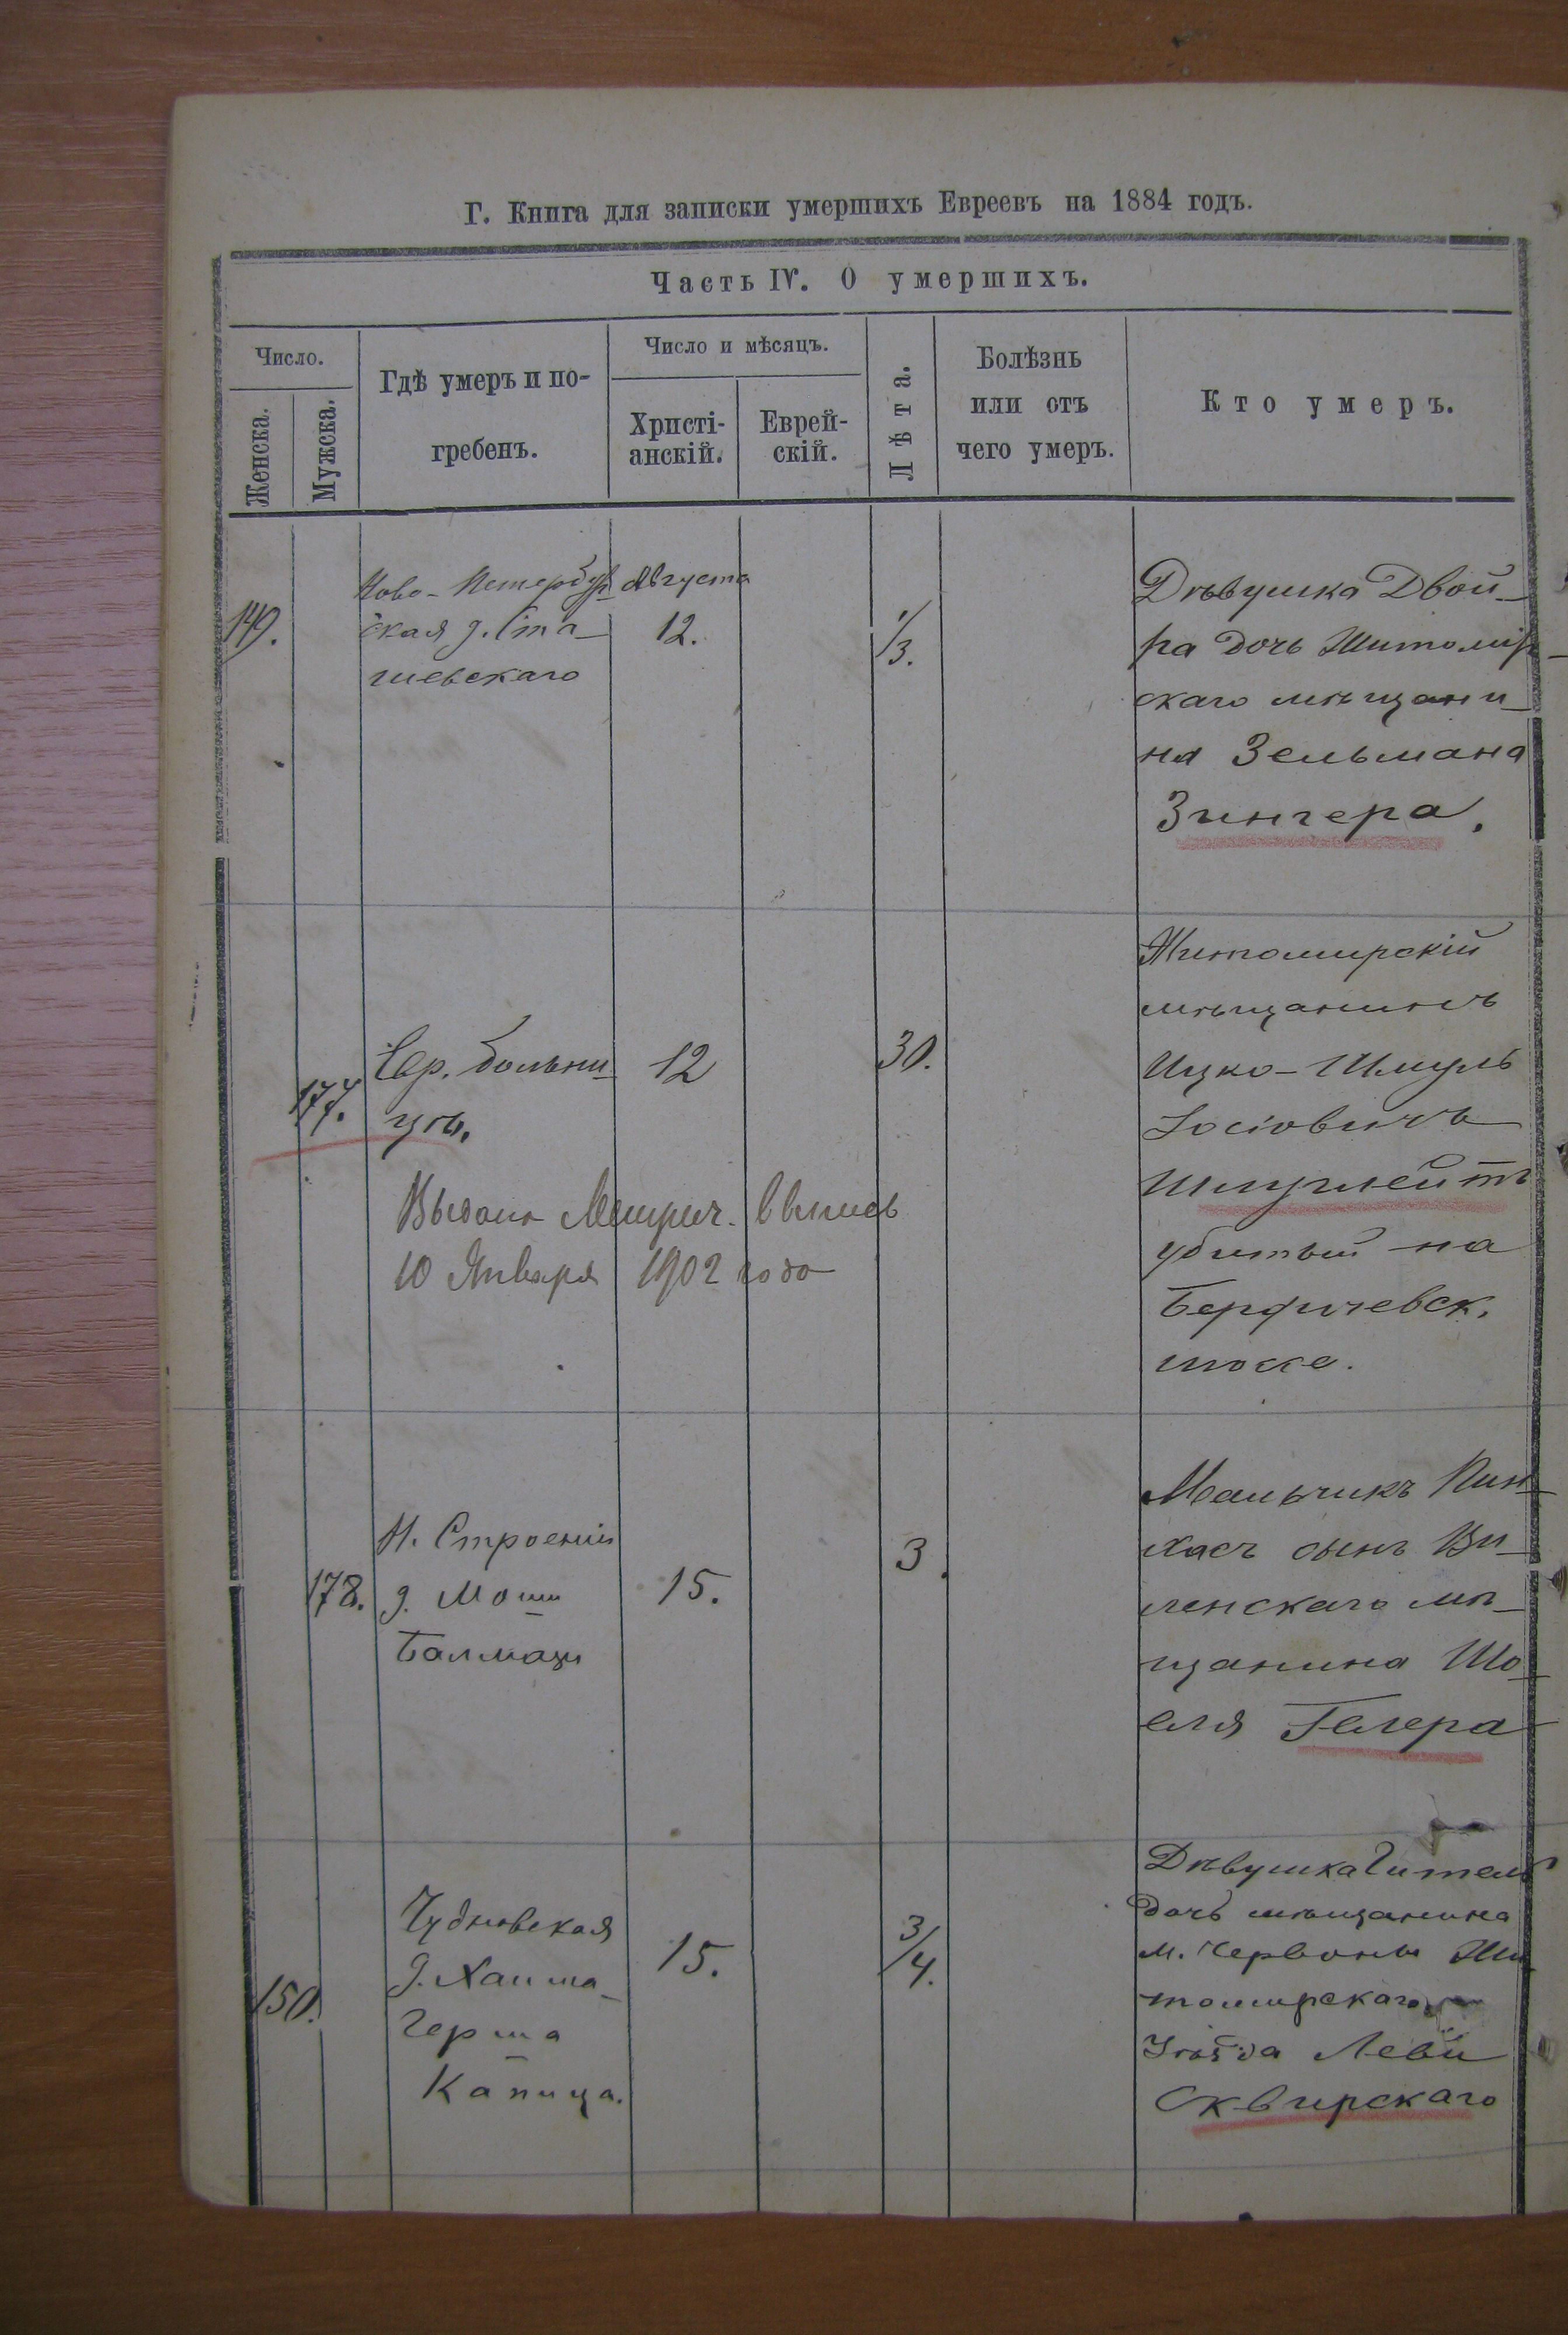 Г. Книга для записки умершихъ Евреевъ на 1884 годъ.
Часть IV. О умершихъ.
Число.
Женска.
Мужска.
Гдѣ умеръ и по-
гребенъ.
Число и мѣсяцъ.
Христі-
анскій.
Еврей-
скій.
Лѣта.
Болѣзнь
или отъ
чего умеръ.
Кто умеръ.
149.
Ново-Петербур
ская д. Ста-
шевскаго
Августа
12.
1/3.
Дѣвушка Двой-
ра дочь Житомір-
скаго мѣщани-
на Зельмана
Зингера.
177.
Евр. больни-
цѣ.
12
30.
Житомирскій
мѣщанинъ
Ицко-Шмуль
Іосіовичъ
Шмуклейтъ
убитый на
Бердичевск.
шоссе.
Выдана Метрич. выпись
10 Января 1902 года
178.
Н. Строеній
д. Мошк
Балмази
15.
3.
Мальчикъ Пин-
хасъ сынъ Ви-
ленскаго мѣ-
щанина Шо-
еля Гелера
150.
Чудновская
д. Хаима-
Герша
Капица.
15.
3/4.
Дѣвушка Гитель
дочь мѣщанина
м. Червоны Жи
томирскаго
Уѣзда Леви
Сквирскаго